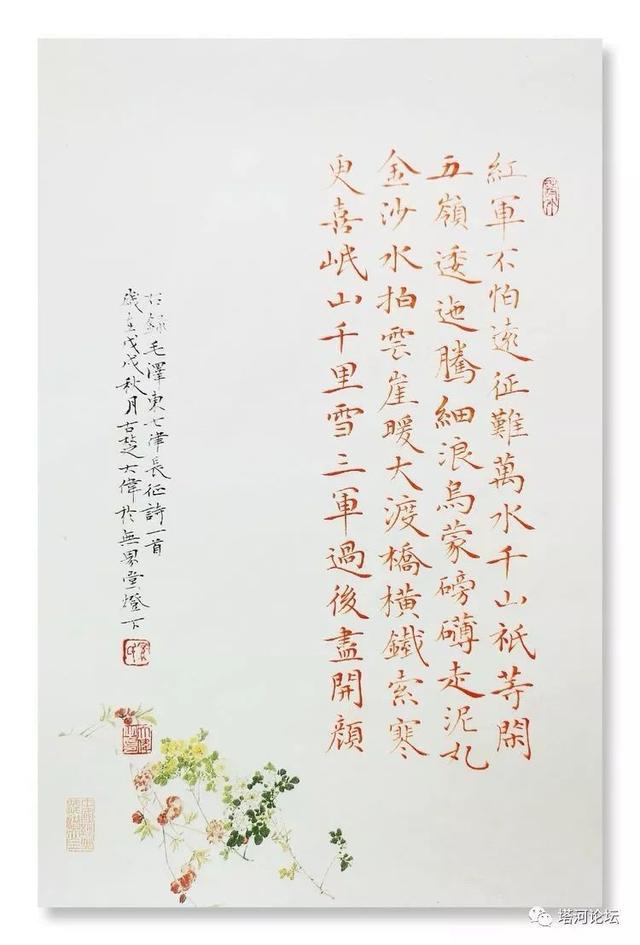 紅軍不怕遠征難萬水千山祇等閑
五嶺逶迤騰細浪烏蒙磅礴走泥丸
金沙水拍雲崖暖大渡橋橫鐵索寒
更喜岷山千里雪三軍過後盡開顔
錄毛澤東七律長征詩一首
歲在戊戌秋月古楚大偉於無界堂燈下
塔河论坛